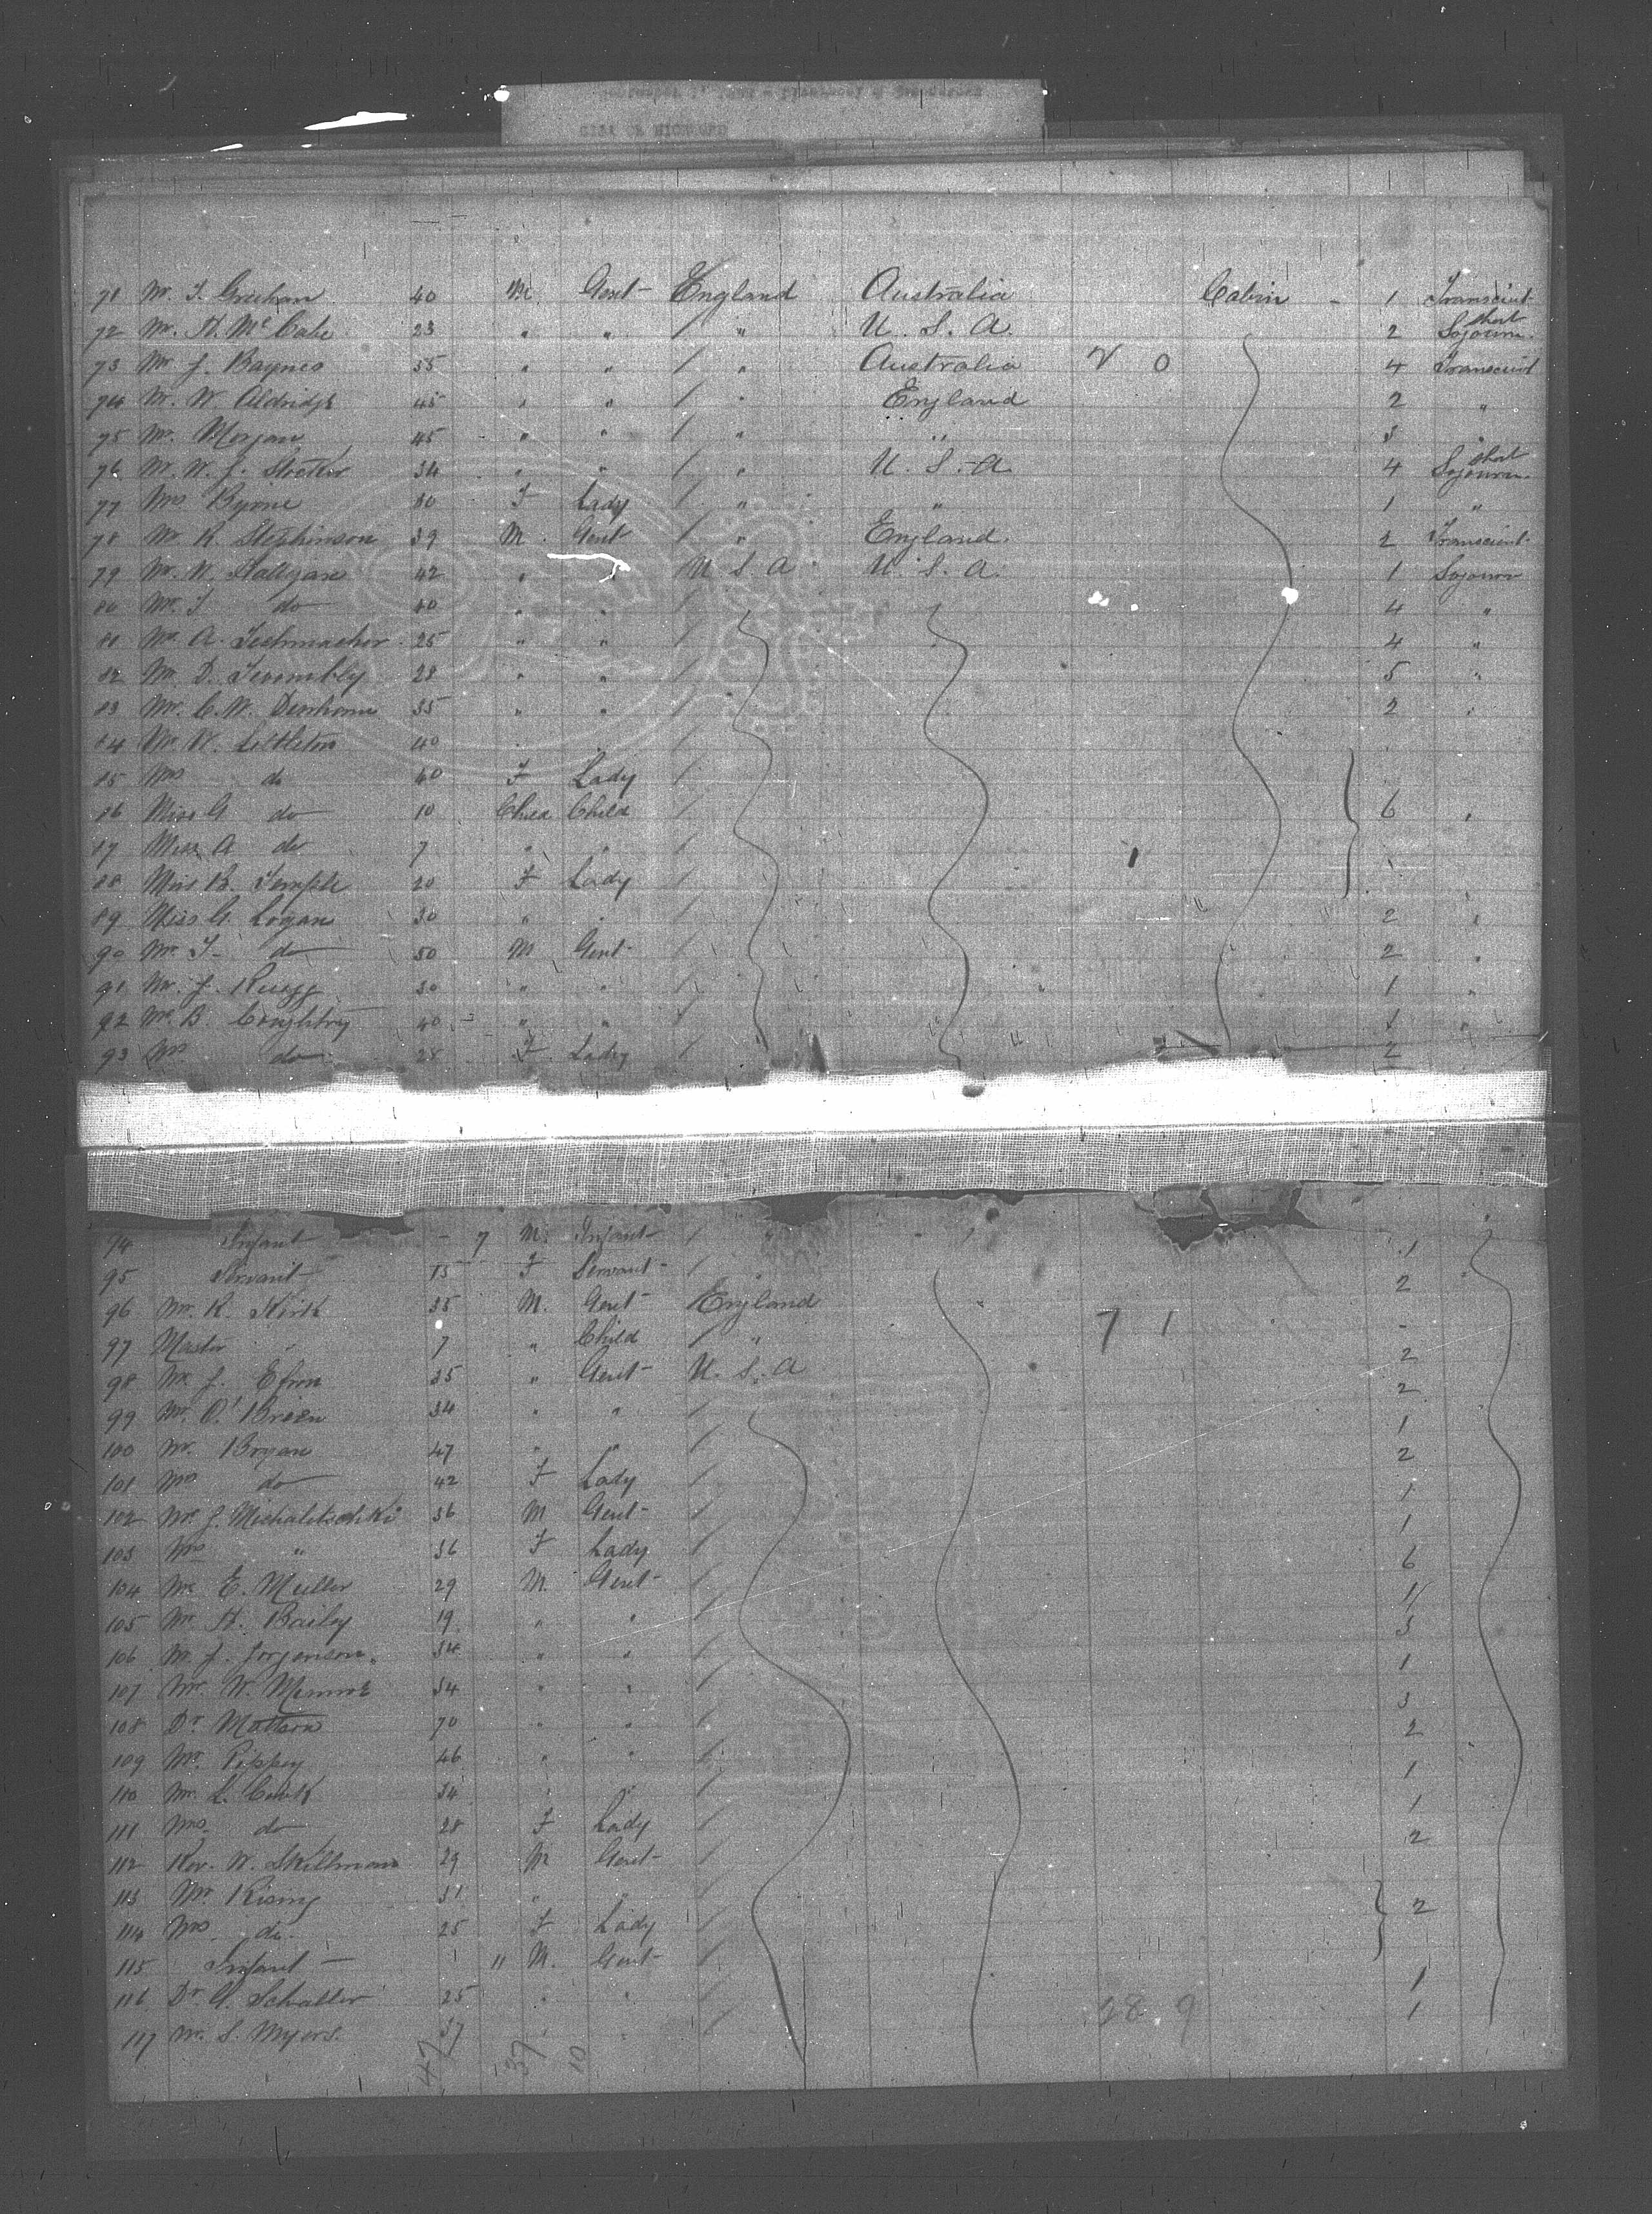 CITY OF RICHMOND
71 Mr. T. Greehan 40 M. Gent England Australia Cabin - 1 Transcient
72 Mr. H. McCabe 23 " " / " U. S. A. 2 Short Sojourn.
73 Mr J. Baynes 35 " " / " Australia 2 0 4 Transcient
74 Mr. W. Aldridge 45 " " / " England 2 "
75 Mr. Morgan 45 " " / " " 3 "
76 Mr. W. J. 34 " " / " U. S. A 4 Short Sojourn.
77 Mrs Byrne 30 F Lady / " " 1 "
78 Mr. R. Stephinson 39 M. Gent / " England. 2 Transcient
79 Mr. W. Halligan 42 " " U. S. A U. S. A. 1 Sojourn
80 Mr. T do 40 " " / 4 "
81 Mr. A. Techmacher 25 " " / 4 "
82 Mr. D. Twombly 28 " " / 5 "
83 Mr. C. W. Denham 35 " " / 2 "
84 Mr. W. Littleton 40 /
85 Mrs do 40 F Lady /
86 Miss G do 10 Child Child / 6 "
87 Miss A do 7 " " /
88 Miss B. Temple 20 F Lady /
89 Miss G. Logan 30 " " / 2 "
90 Mr. T. do 50 M Gent / 2 "
91 Mr. J. Ruegg 30 " " / 1 "
92 Mr. B. Coughtry 40 " " / 1 "
93 Mrs do 28 F Lady / 2
94 Infant - 7 M. Infant / "
95 Servant 15 F Servant / 1
96 Mr. R. Kirk 35 M. Gent England 2
97 Master " 7 " Child / " 7 1 -
98 Mr. J. Efron 35 " Gent U. S. A 2
99 Mr. O'Breen 34 " " / 2
100 Mr. Bryan 47 " " / 1
101 Mrs do 42 F Lady / 2
102 Mr. J. Michalitschki 36 M Gent / 1
103 Mrs " 36 F Lady / 1
104 Mr. E. Muller 29 M. Gent / 6
105 Mr. H. Bailey 19 " " / 11
106 Mr. J. Jorgenson. 34 " " / 3
107 Mr. W. Munroe 54 " " / 1
108 Dr Mattson 70 " " / 3
109 Mr. Pippey 46 " " / 2
110 Mr. L. 34 " " / 1
111 Mrs. do 28 F Lady / 1
112 Rev. W. Skillman 29 M Gent / 2
113 Mr Rising 31 " " /
114 Mrs. do. 25 F Lady / 2
115 Infant - 11 M. Gent /
116 Dr. G. Schaller 25 " " / 1
117 Mr. S. Myers. 37 / 28 9 1
47 37 10